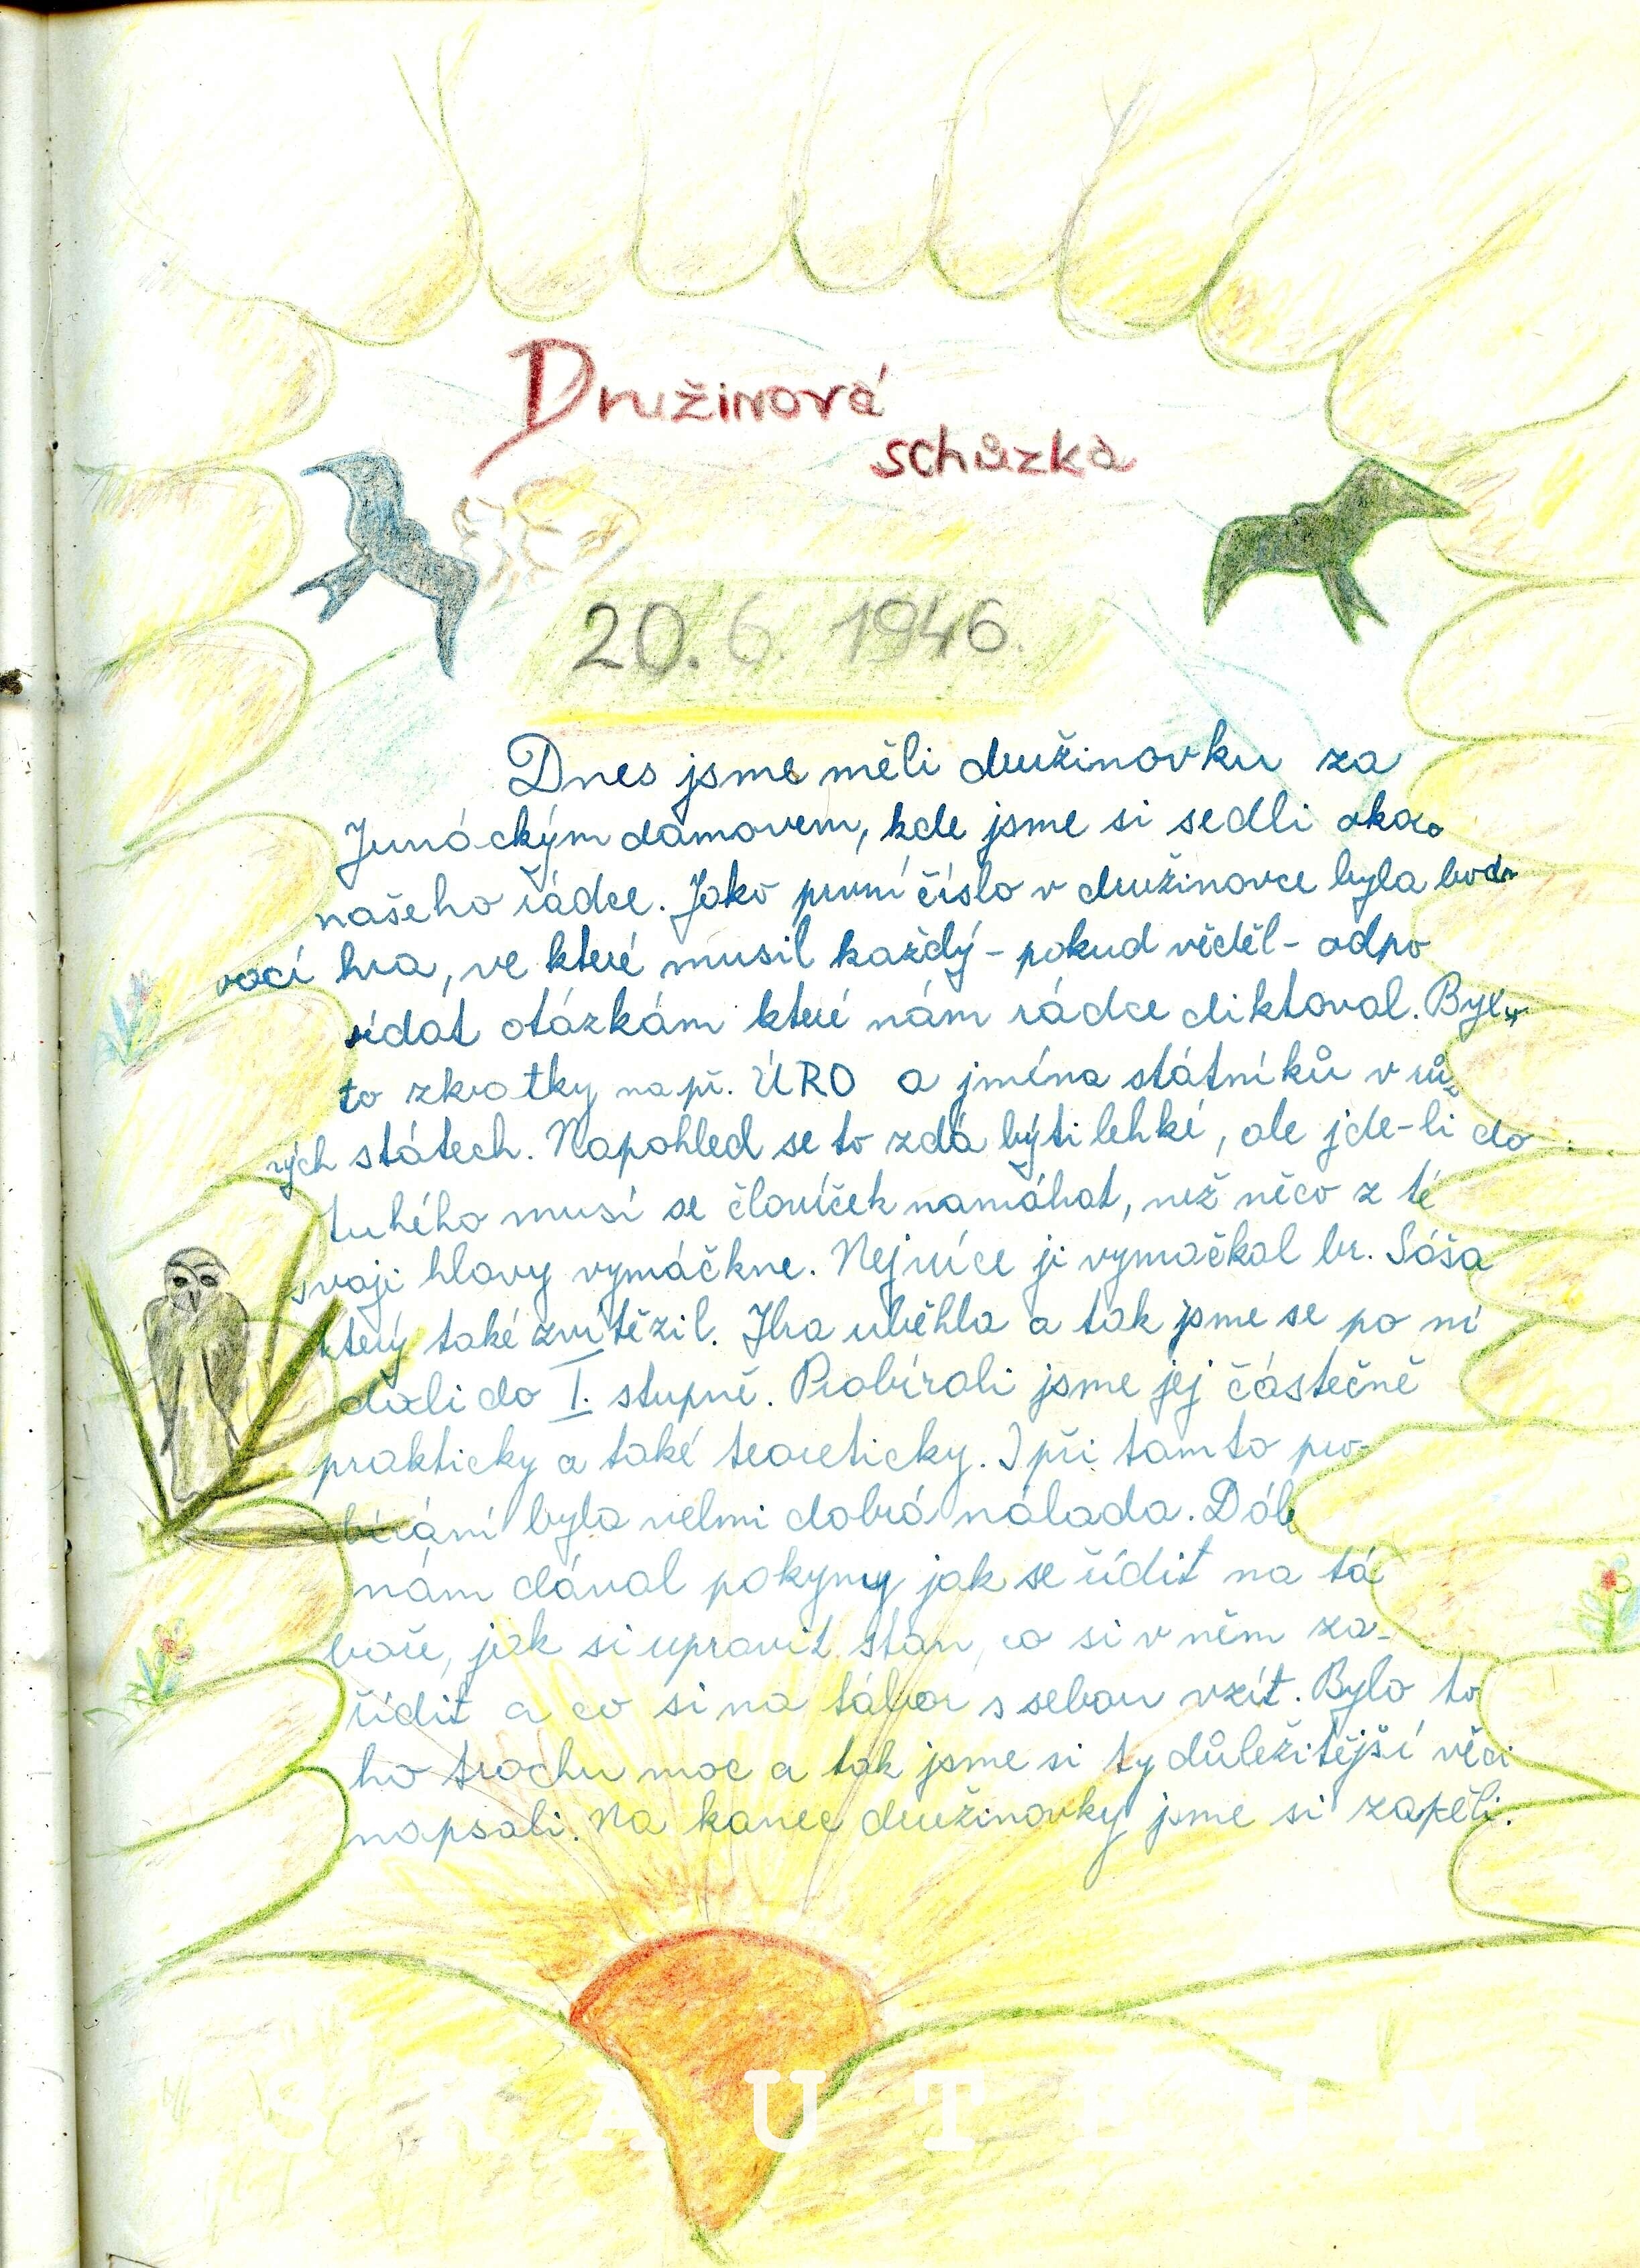 Družinová
schůzka
20. 6. 1946.
Dnes jsme měli družinovku za
Junáckým domovem, kde jsme si sedli okolo
našeho rádce. Jako první číslo v družinovce byla bodo
vací hra, ve které musil každý - pokud věděl - odpo
vídat otázkám které nám rádce diktoval. Byly
to zkratky např. ÚRO a jména státníků v rů
zných státech. Napohled se to zdá býti lehké, ale jde-li do
tuhého musí se človíček namáhat, než něco z té
svoji hlavy vymáčkne. Nejvíce ji vymačkal br. Sáša
který také zvítězil. Hra uběhla a tak jsme se po ní
dali do I. stupně. Probírali jsme jej částečně
prakticky a také teoreticky. I při tomto pro-
bírání byla velmi dobrá nálada. Dál
nám dával pokyny jak se řídit na tá
boře, jak si upravit stan, co si v něm za-
řídit a co si na tábor s sebou vzít. Bylo to
ho trochu moc a tak jsme si ty důležitější věci
napsali. Na konec družinovky jsme si zapěli.
SKAUTEUM